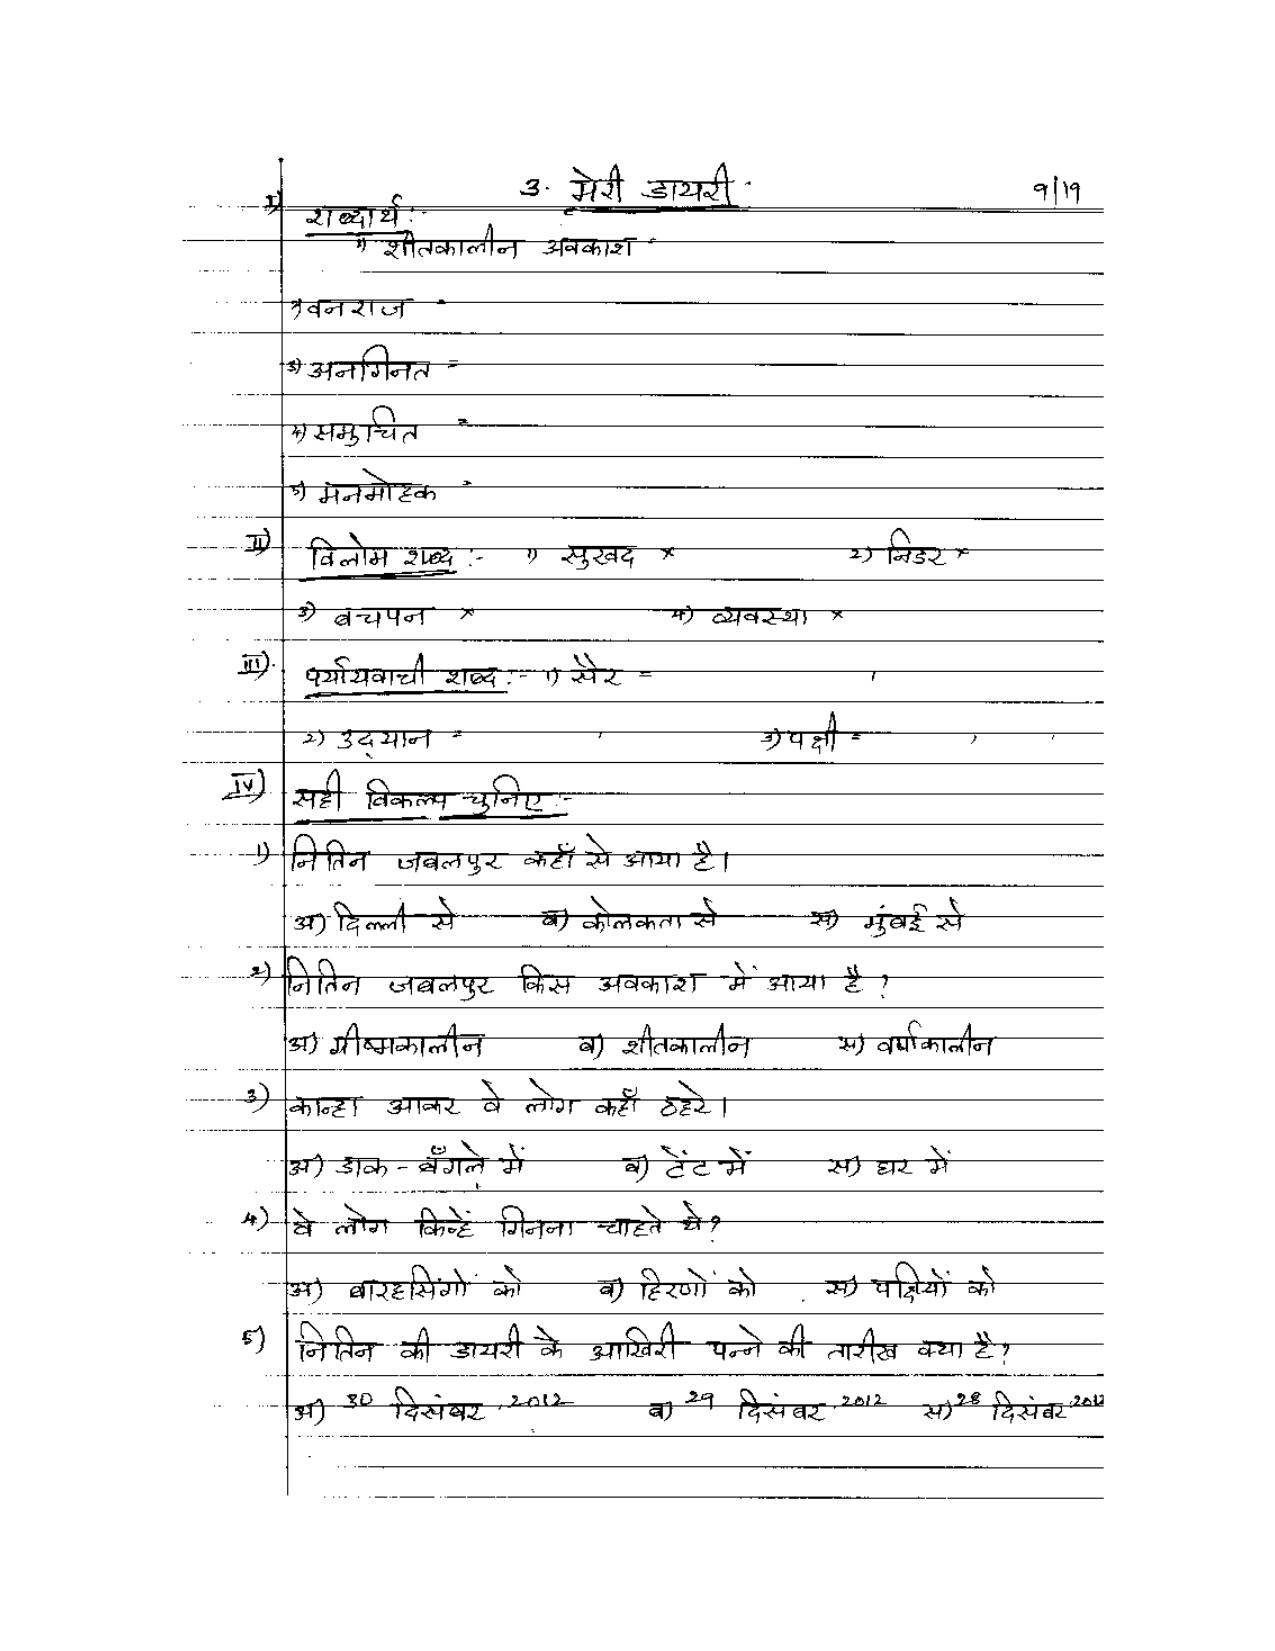 3. मेरी डायरी. 9/19
I) शब्दार्थ:-
1) शीतकालीन अवकाश =
2) वनराज =
3) अनगिनत =
4) समुचित =
5) मनमोहक =
II) विलोम शब्द :- 1) सुखद × 2) निडर ×
3) बचपन × 4) व्यवस्था ×
III). पर्यायवाची शब्द :- 1) सैर = ,
2) उद्‌यान = , 3) पक्षी = , ,
IV) सही विकल्प चुनिए :-
1) नितिन जबलपुर कहाँ से आया है।
अ) दिल्ली से ब) कोलकता से स) मुंबई से
2) नितिन जबलपुर किस अवकाश में आया है ?
अ) ग्रीष्मकालीन ब) शीतकालीन स) वर्षाकालीन
3) कान्हा आकर वे लोग कहाँ ठहरे।
अ) डाक - बँगले में ब) टेंट में स) घर में
4) वे लोग किन्हें गिनना चाहते थे?
अ) बारहसिंगों को ब) हिरणों को स) पक्षियों को
5) नितिन की डायरी के आखिरी पन्ने की तारीख क्या है?
अ) 30 दिसंबर, 2012 ब) 29 दिसंबर, 2012 स) 28 दिसंबर, 2012